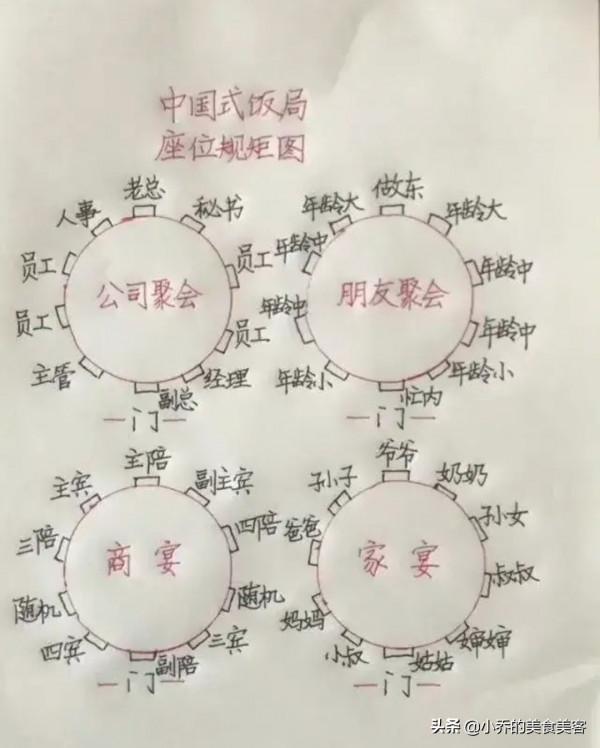 中国式饭局
座位规矩图
老总
人事
秘书
员工
员工
员工
员工
主管
经理
副总
公司聚会
门
做东
年龄大
年龄大
年龄中
年龄中
年龄中
年龄中
年龄小
年龄小
忙内
朋友聚会
门
主陪
主宾
副主宾
三陪
四陪
随机
随机
四宾
三宾
副陪
商宴
门
爷爷
孙子
奶奶
爸爸
孙女
叔叔
妈妈
婶婶
小叔
姑姑
家宴
门
头条 @小乔的美食美客